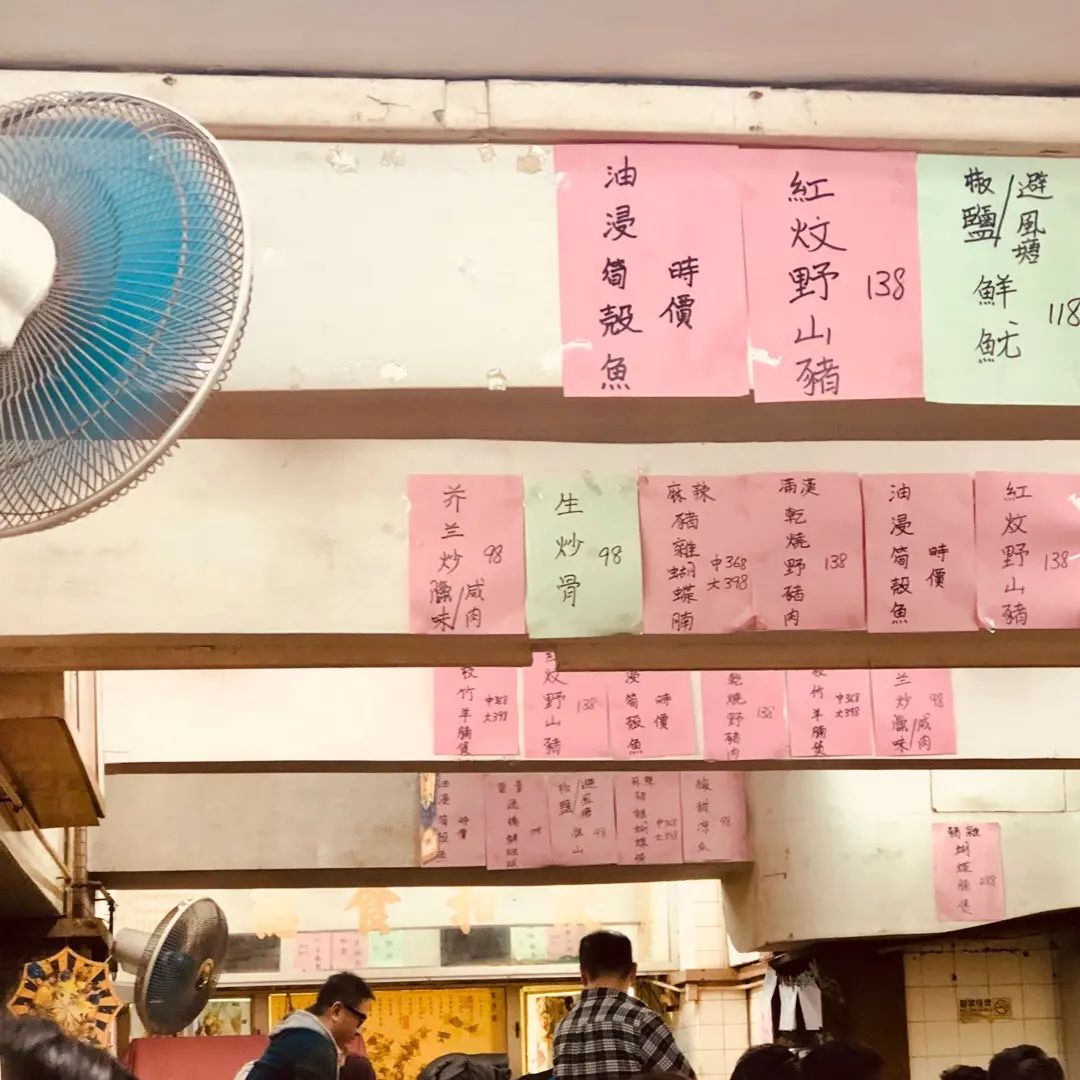 油浸筍殼魚
時價
紅炆野山豬
138
椒鹽/避風塘
鮮魷
118
芥兰炒臘味/咸肉
98
生炒骨
98
麻辣豬雜蝴蝶腩
中368
大398
滿漢乾燒野豬肉
138
油浸筍殼魚
時價
紅炆野山豬
138
竹羊腩煲
中368
大398
炆野山豬
138
浸筍殼魚
時價
乾燒野豬肉
138
竹羊腩煲
中368
大398
兰炒臘味/咸肉
98
油浸筍殼魚
時價
椒鹽/避風塘
98
98
食
和